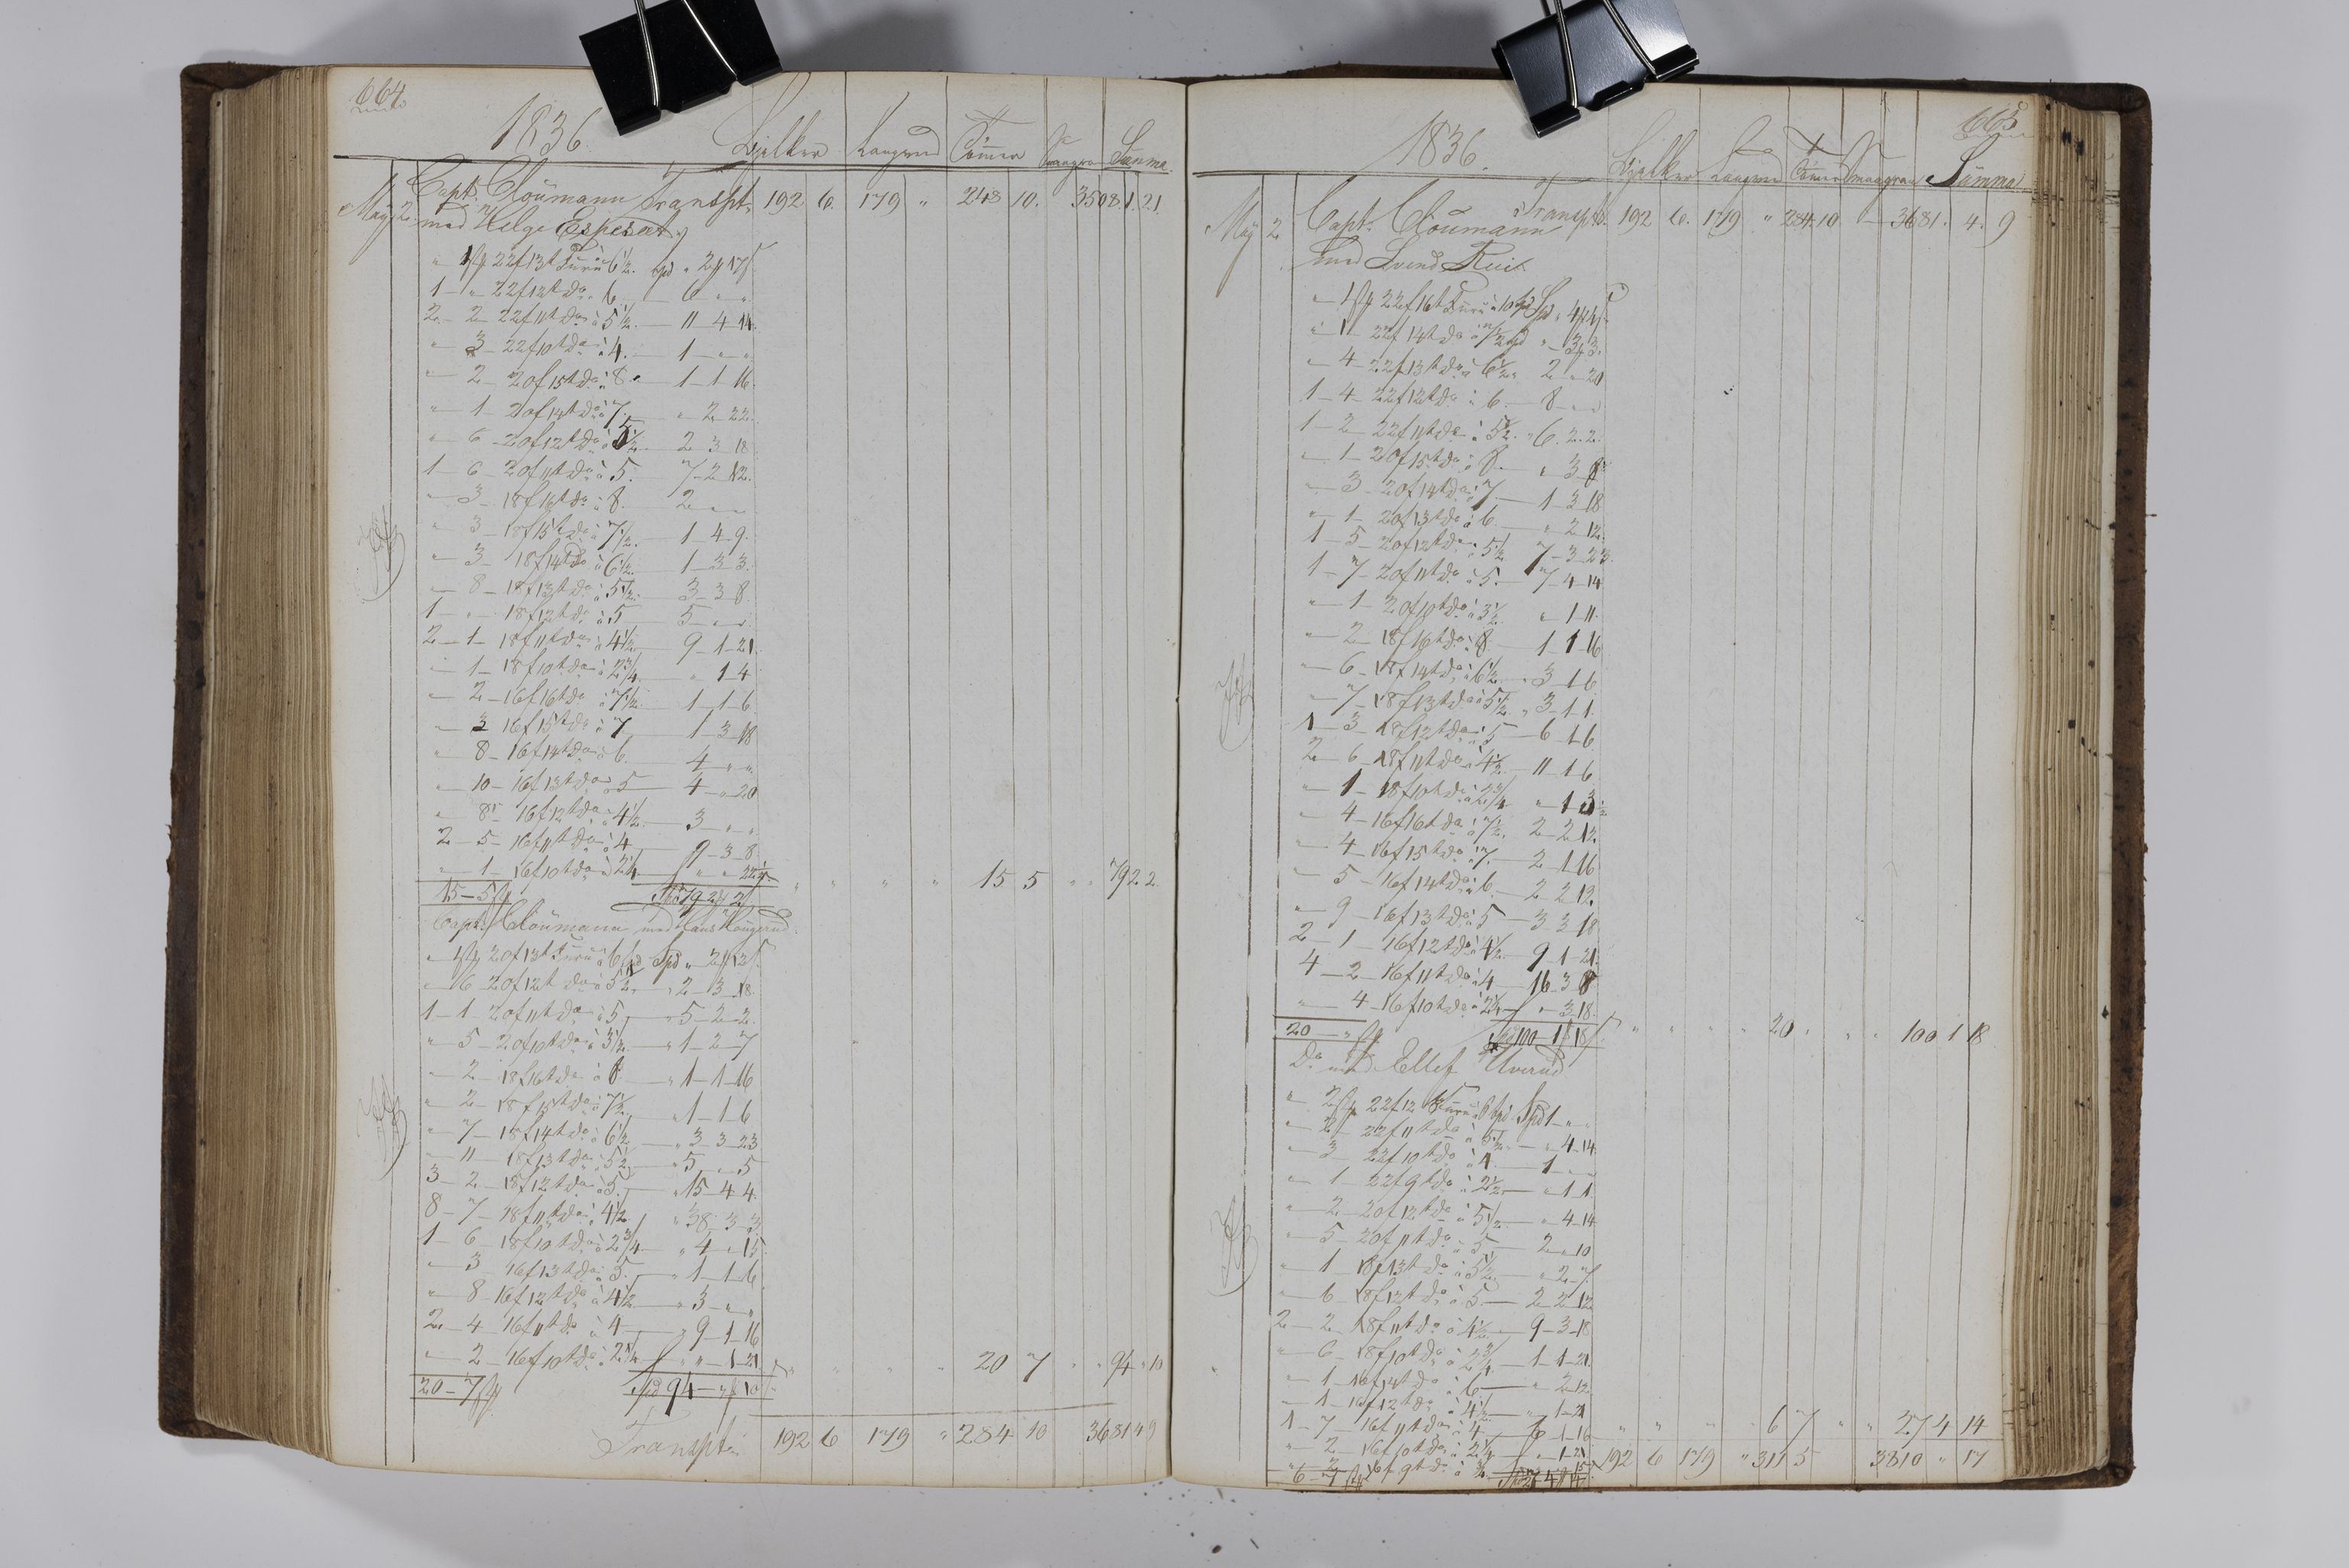 664
1836. Bjelker Langved Tömmer Smaagran Summa
May 2. Capt. Cloumann Transpt. 192 6. 179 " 248 10. 3508. 1. 21.
med Helge Espeset
" 1 22f 13t Furu à 6½. " 2 17
1 " 22f 12t do à 6 6 " "
2 2 22f 11t do à 5½. 11 4 14.
" 3 22f 10t do à 4. 1 " "
" 2 20f 15t do à 8. 1 1 16.
" 1 20f 14t do à 7. " 2 22.
" 6 20f 12t do à 5½. 2 3 18
1 6 20f 11t do à 5. 7 2 12.
" 3 18f 16t do à 8. 2 " "
" 3 18f 15t do à 7½. 1 4 9.
" 3 18f 14t do à 6½. 1 3 3.
" 8 18f 13t do à 5½. 3 3 8.
1 " 18f 12t do à 5 5 " "
2 1 18f 11t do à 4½. 9 1 21.
" 1 18f 10t do à 2¾. " 1 4
" 2 16f 16t do à 7½. 1 1 6.
" 3 16f 15t do à 7 1 3 18
" 8 16f 14t do à 6. 4 " "
" 10 16f 13t do à 5 4 " 20
" 8 16f 12t do à 4½. 3 " "
2 5 16f 11t do à 4 9 3 8.
" 1 16f 10t do à 2¼ " " 22½
15 – 5 Spd 79 2 2 " " " " 15 5 " " 79 2 2
Capt. Cloumann med Hans Rougerud.
" 1 20f 13t Furu à 6 Spd " 2 12
" 6 20f 12t do à 5½. " 2 3 18
1 1 20f 11t do à 5 " 5 2 2.
" 5 20f 10t do à 3½. " 1 2 7
" 2 18f 16t do à 8. " 1 1 16
" 2 18f 15t do à 7½. " 1 1 6
" 7 18f 14t do à 6½ " 3 3 23
" 11 18f 13t do à 5½. " 5 " 5
3 2 18f 12t do à 5. " 15 4 4.
8 7 18f 11t do à 4½. " 38 3 3.
1 6 18f 10t do à 2¾. " 4 " 15.
" 3 16f 13t do à 5. " 1 1 6
" 8 16f 12t do à 4½. " 3 " "
2 4 16f 11t do à 4 " 9 1 16
" 2 16f 10t do à 2¼ " " 1 21
20 – 7 Spd 94 " 10 " " " 20 7 " " 94 " 10
Transpt. 192 6 179 " 284 10 3681 4 9
665
1836. Bjelker Langved Tömmer Smaagran Summa
May 2 Capt. Cloumann Transpt. 192 6. 179 " 284. 10 3681. 4. 9
med Svend Ruit
" 1 22f 16t Furu à 10 Spd " 4
" 1 22f 14t do à 7½ " 3 3.
" 4 22f 13t do à 6½. 2 " 20
1 4 22f 12t do à 6. 8 " "
1 2 22f 11t do à 5½. 6. 2. 2.
" 1 20f 15t do à 8. " 3 8
" 3 20f 14t do à 7 1 3 18
" 1 20f 13t do à 6. " 2 12.
1 5 20f 12t do à 5½ 7 3 23.
1 7 20f 11t do à 5. 7 4 14
" 1 20f 10t do à 3½. " 1 11.
" 2 18f 16t do à 8 1 1 16
" 6 18f 14t do à 6½. 3 1 6.
" 7 18f 13t do à 5½ 3 1 1.
1 3 18f 12t do à 5 6 1 6
2 6 18f 11t do à 4½. 11 1 6.
" 1 18f 10t do à 2¾ " 1 3½
" 4 16f 16t do à 7½. 2 2 12.
" 4 16f 15t do à 7. 2 1 16
" 5 16f 14t do à 6. 2 2 12.
" 9 16f 13t do à 5 3 3 18
2 1 16f 12t do à 4½. 9 1 21.
4 2 16f 11t do à 4 16 3 8
" 4 16f 10t do à 2¼ " 3 18.
20 " Spd 100 – 1 18 " " " " 20 " " " 100 1 18
Do med Ellef Uverud
" 2 22f 12 Furu à 6 Spd 1 " "
" 2 22f 11t do à 5½ " 4 14.
" 3 22f 10t do à 4. 1 " "
" 1 22f 9t do à 2½. " 1 1.
" 2 20f 12t do à 5½. " 4 14
" 5 20f 11t do à 5. 2 " 10
" 1 18f 13t do à 5½. " 2 7.
" 6 18f 12t do à 5. 2 2 12.
2 2 18f 11t do à 4½. 9 3 18
" 6 18f 10t do à 2¾. 1 1 21.
" 1 16f 14t do à 6. " 2 12.
" 1 16f 12t do à 4½. " 1 21
1 7 16f 11t do à 4 6 1 16
" 2 16f 10t do à 2¼ " 1 21
" 2 16f 9t do à " 15
6 – 7 Spd 27 4 14 " " " " 6 7 " " 27 4 14
192 6 179 " 311 5 3810 " 17